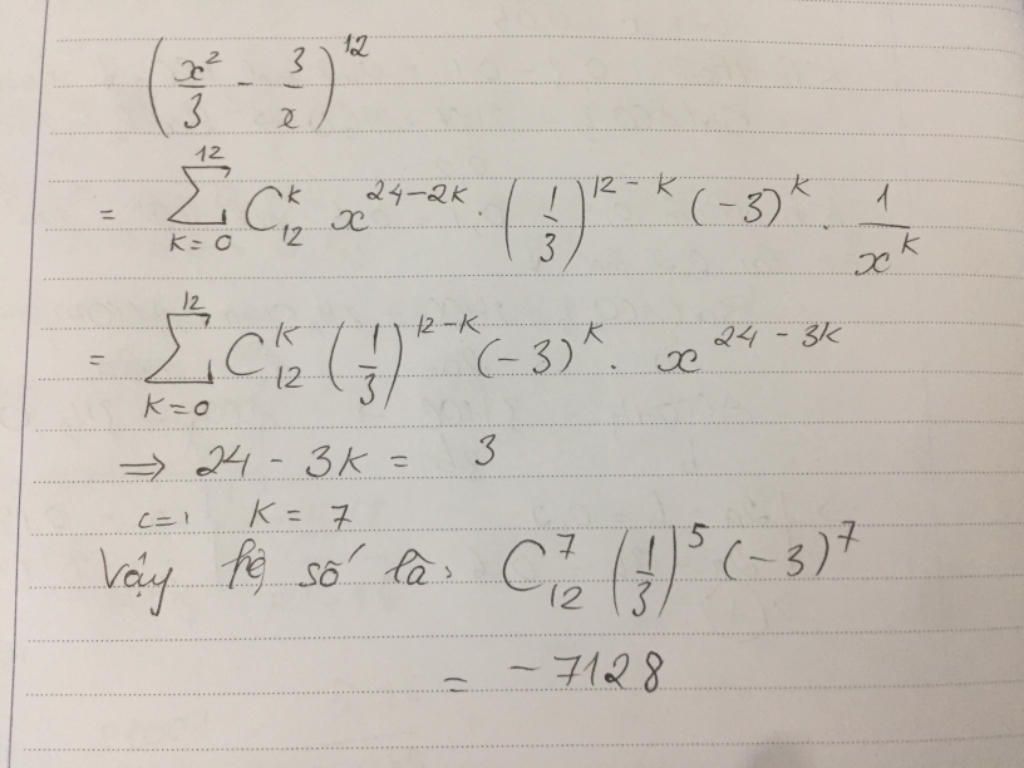 (x²/3 - 3/x)¹²
= ∑_{K=0}^{12} C_{12}^{K} x^{24-2K} · (1/3)^{12-K} (-3)^{K} · 1/x^{K}
= ∑_{K=0}^{12} C_{12}^{K} (1/3)^{12-K} (-3)^{K} · x^{24-3K}
⇒ 24 - 3K = 3
<=> K = 7
Vậy hệ số là: C_{12}^{7} (1/3)^{5} (-3)^{7}
= -7128